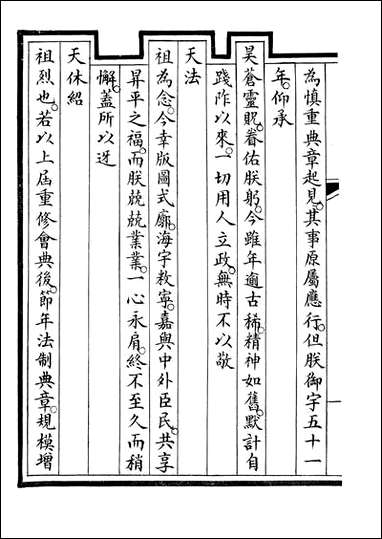 為慎重典章起見。其事原屬應行。但朕御宇五十一
年。仰承
昊蒼靈貺。眷佑朕躬。今雖年逾古稀。精神如舊。默計自
踐阼以來。一切用人立政。無時不以敬
天法
祖為念。今幸版圖式廓。海宇敉寧。嘉與中外臣民。共享
昇平之福。而朕兢兢業業。一心永肩。終不至久而稍
懈。蓋所以迓
天休紹
祖烈也。若以上屆重修會典後。節年法制典章。規模增